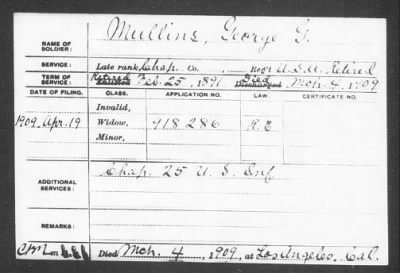 NAME OF SOLDIER: Mullins, George G.
SERVICE: Late rank Chap. Co. , Reg't U.S.A. Retired
TERM OF SERVICE: Retired Enlisted Feb. 25, 1891, Died Discharged Mch. 4, 1909
DATE OF FILING. CLASS. APPLICATION NO. LAW CERTIFICATE NO.
Invalid,
1909 Apr. 19 Widow, 918286 R.E
Minor,
ADDITIONAL SERVICES: Chap. 25 U.S. Inf
REMARKS:
Died Mch. 4, 1909, at Los Angeles, Cal.